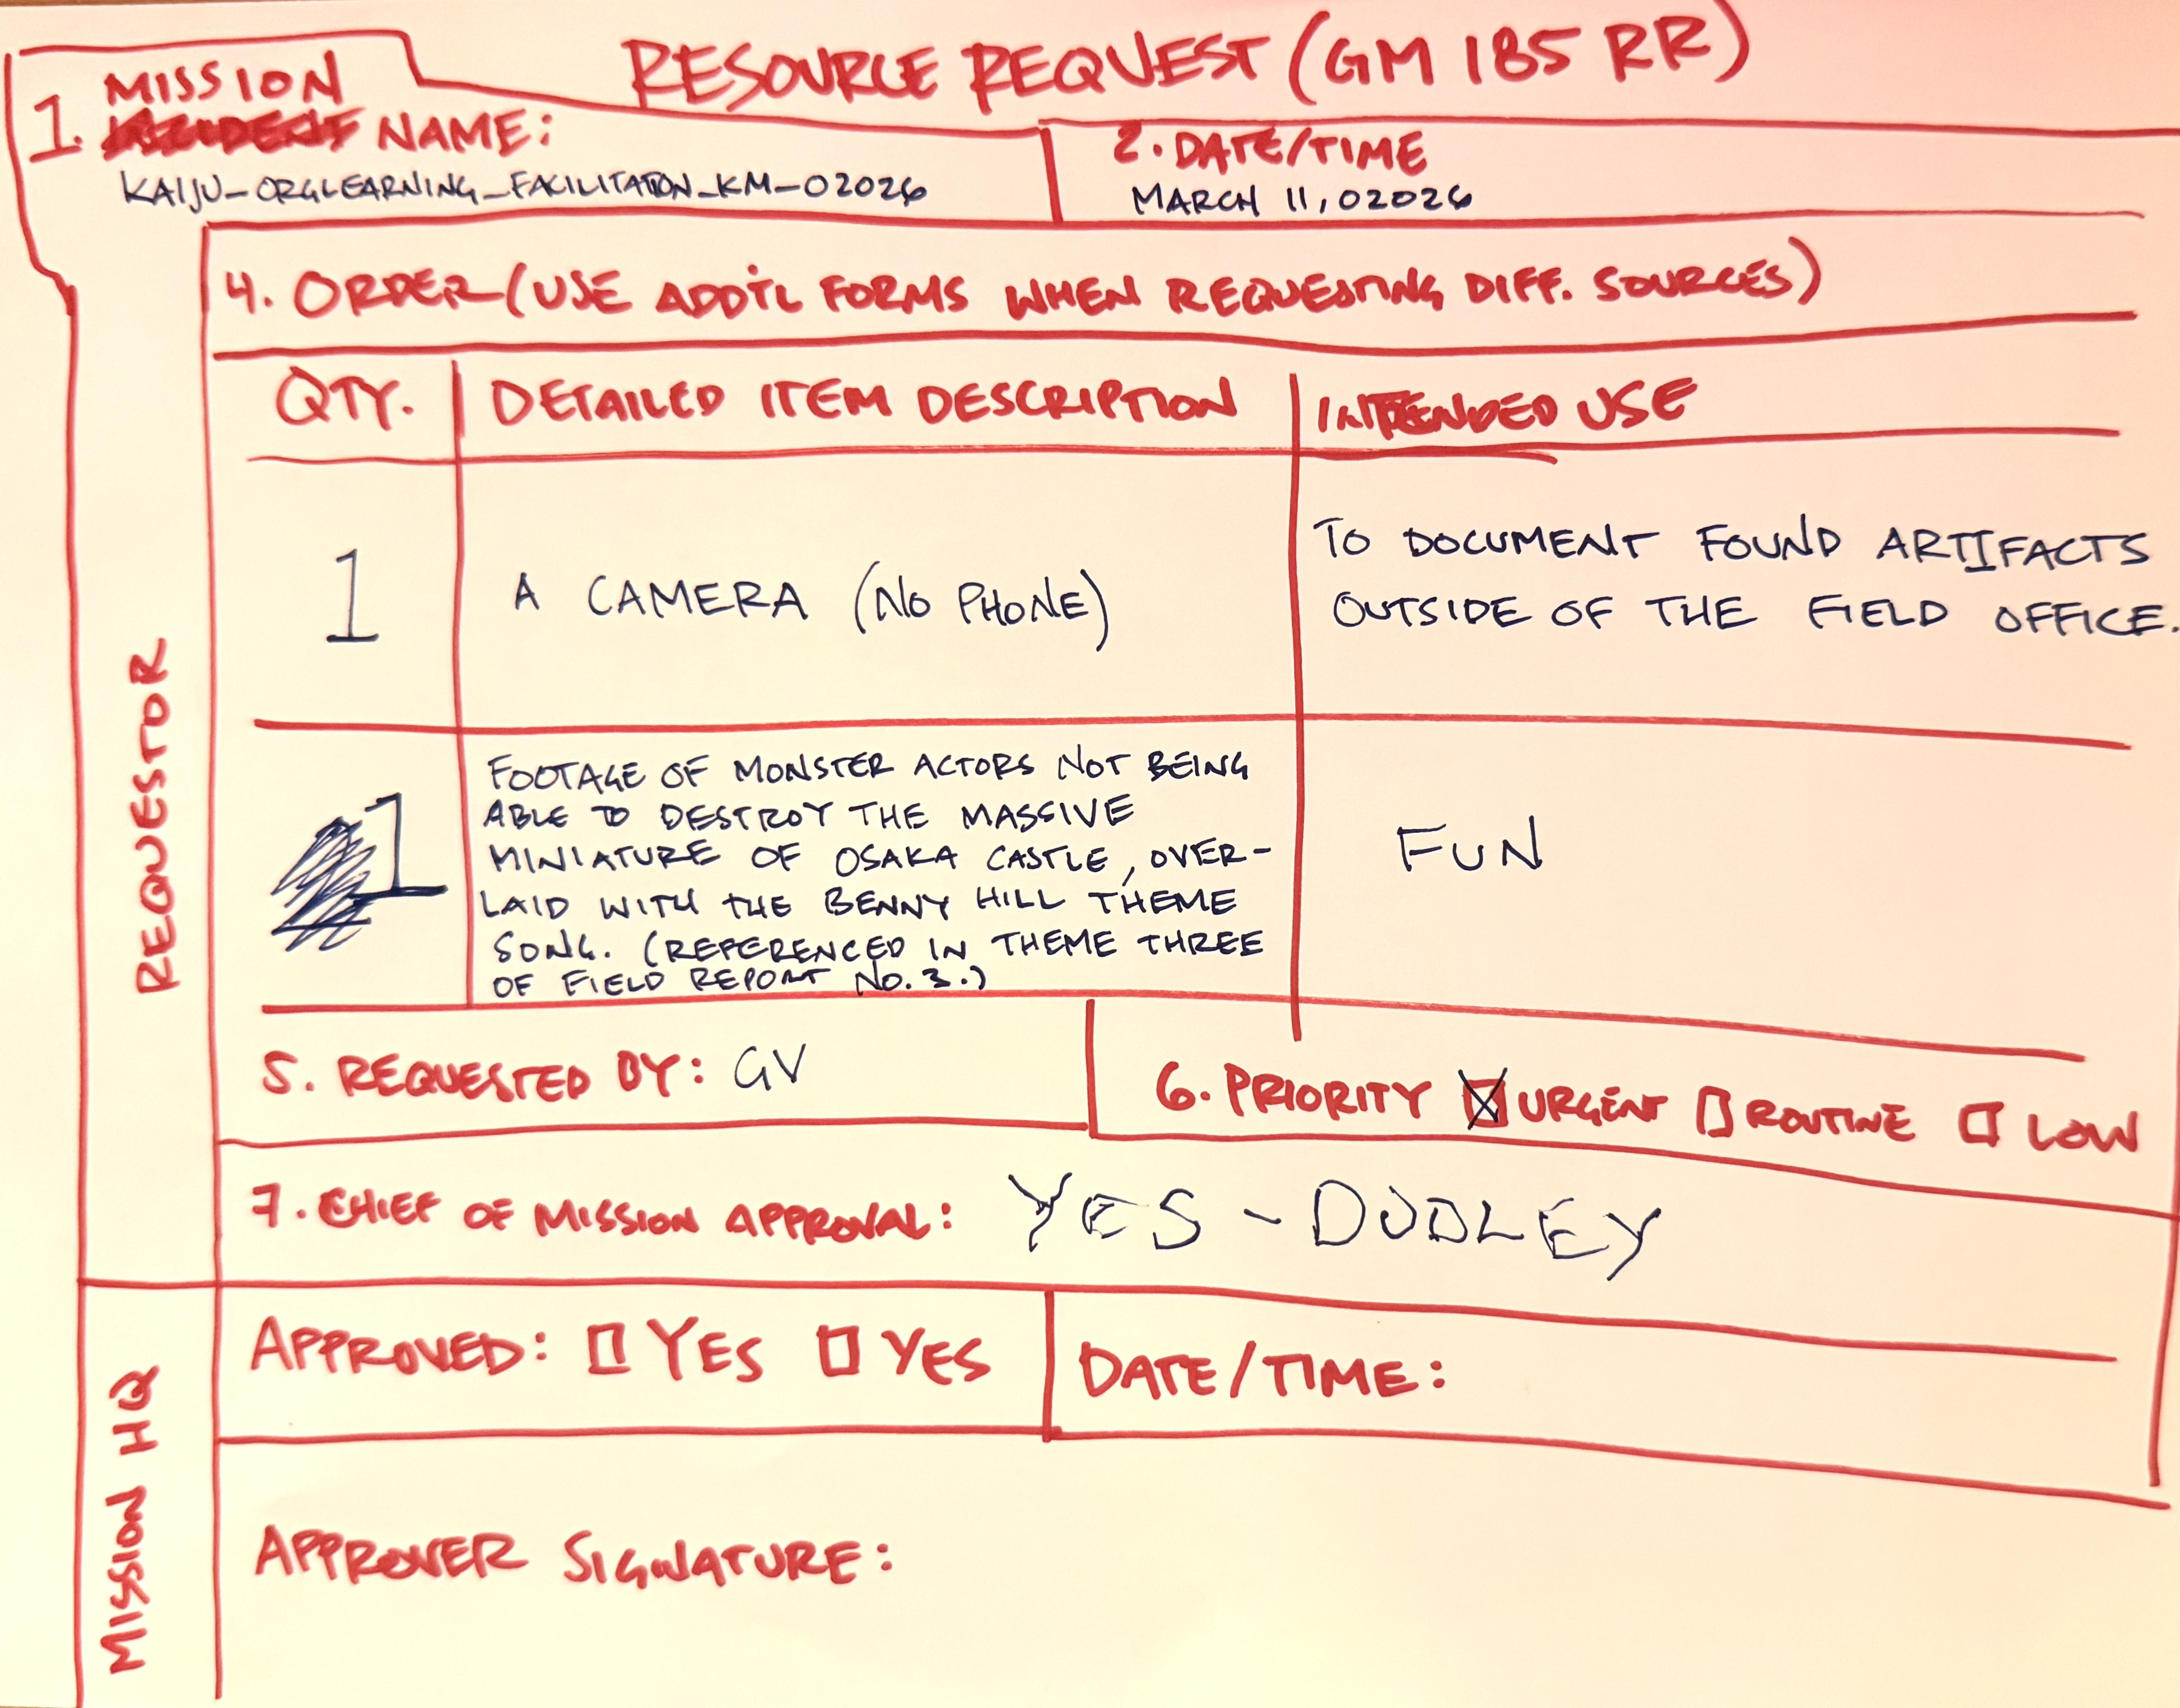 RESOURCE REQUEST (GM 185 RR)
1. MISSION
NAME:
KAIJU_ORGLEARNING_FACILITATION_KM_02026
2. DATE/TIME
MARCH 11, 02026
REQUESTOR
4. ORDER (USE ADDTL FORMS WHEN REQUESTING DIFF. SOURCES)
QTY.
DETAILED ITEM DESCRIPTION
INTENDED USE
1
A CAMERA (NO PHONE)
TO DOCUMENT FOUND ARTIFACTS
OUTSIDE OF THE FIELD OFFICE.
1
FOOTAGE OF MONSTER ACTORS NOT BEING
ABLE TO DESTROY THE MASSIVE
MINIATURE OF OSAKA CASTLE, OVER-
LAID WITH THE BENNY HILL THEME
SONG. (REFERENCED IN THEME THREE
OF FIELD REPORT NO. 3.)
FUN
5. REQUESTED BY: GV
6. PRIORITY URGENT ROUTINE LOW
7. CHIEF OF MISSION APPROVAL: YES - DUDLEY
MISSION HQ
APPROVED: YES YES
DATE/TIME:
APPROVER SIGNATURE: